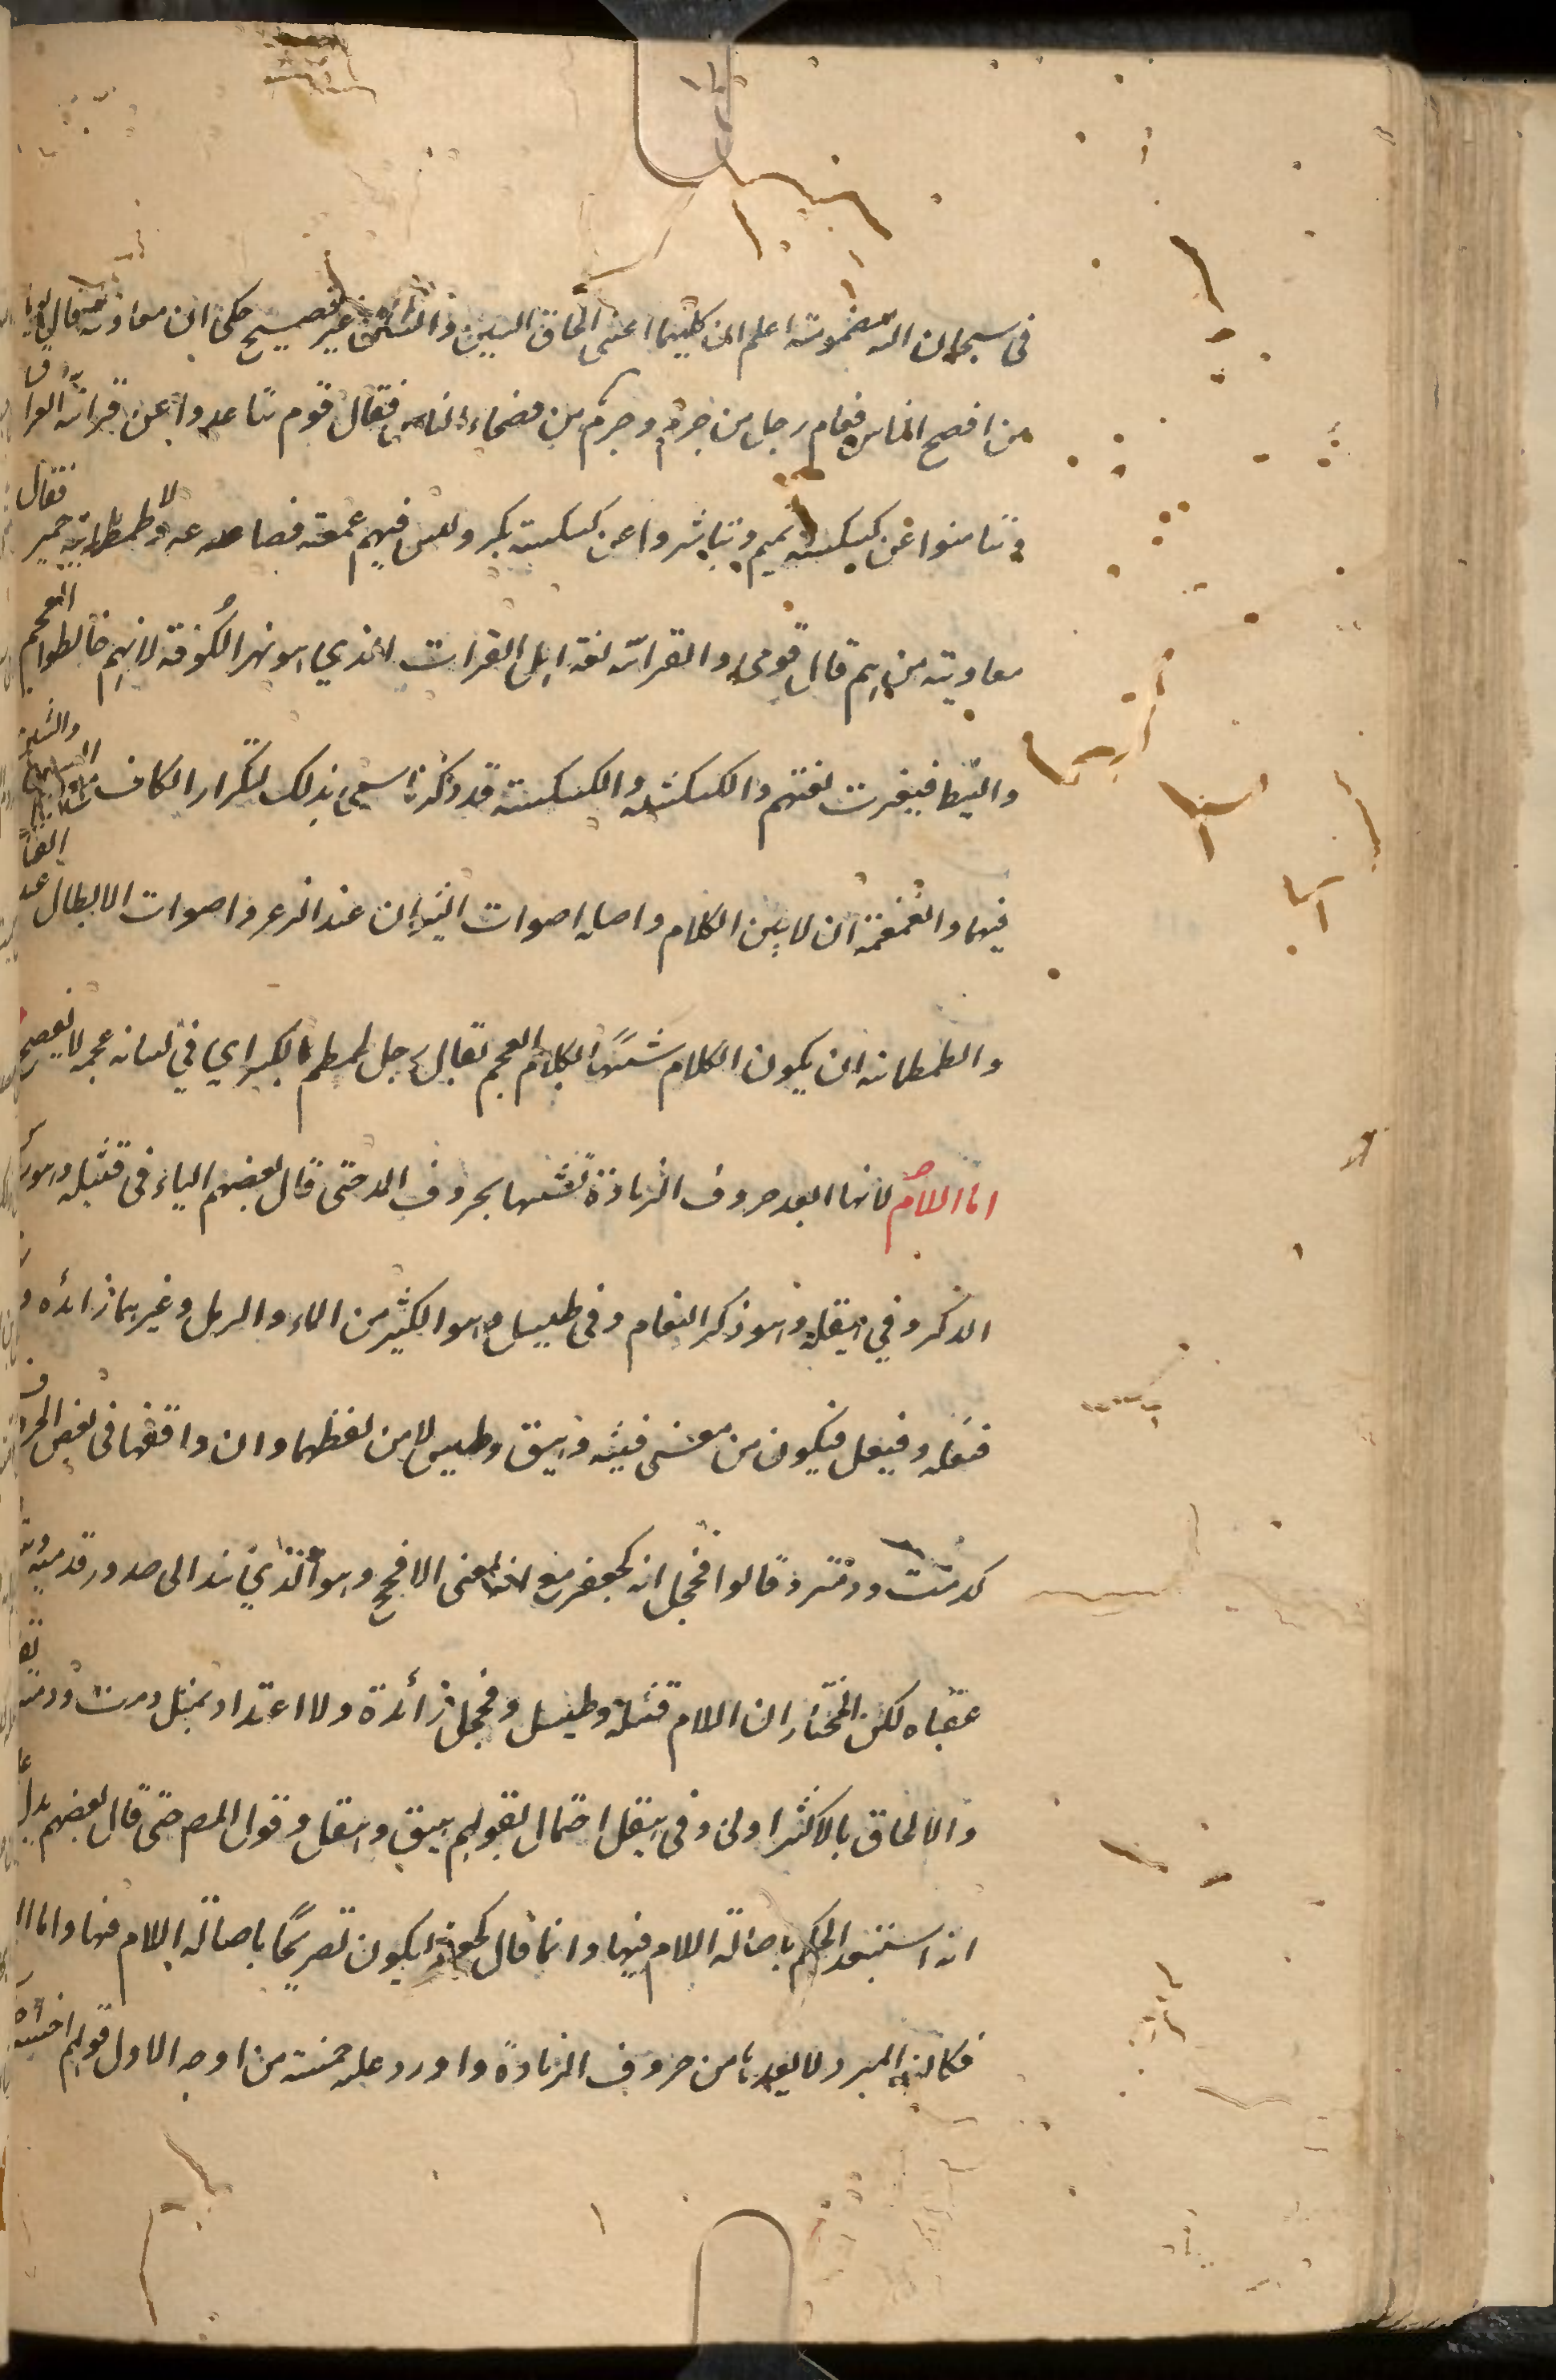 فى سبحان الله مضمومة اعلم ان كليهما اعنى الحاق السين والشين غير فصيح حكى ان معاوية قال يوما
من افصح الناس فقام رجل من جرم وجرم من فصحاء الناس فقال قوم تباعدوا عن فراتية العراق
وتيامنوا عن كشكشة تميم وتياسروا عن كسكسة بكر وليس فيهم غمغمة قضاعة ولا طمطمانية حمير فقال
معاوية من هم قال قومى والفراتية لغة اهل الفرات الذي هو نهر الكوفة لانهم خالطوا العجم
والنبط فتغيرت لغتهم والكشكشة والكسكسة قد ذكرنا سمى بذلك لتكرار الكاف والشين
فيهما والغمغمة ان لا يبين الكلام واصله اصوات الثيران عند الذعر واصوات الابطال عند
والطمطمانية ان يكون الكلام شبيها بكلام العجم يقال رجل طمطم بالكسر اي في لسانه عجمة لا يفصح
اما اللام لانها ابعد حروف الزيادة تشبها بحروف المد حتى قال بعضهم الياء فى فيشلة وهو رأس
الذكر وفي هيقلة وهو ذكر النعام وفى طيسل وهو الكثير من الماء والرمل وغيرهما زائدة
فيعلة وفيعل فيكون من معنى فيشة وهيق وطيس لا من لفظهما وان وافقها فى بعض الحروف
كدمث ودمثر وقالوا فحجل انه كجعفر مع انه بمعنى الافحج وهو الذي تدانى صدور قدميه
عقباه لكن المختار ان اللام فيشلة وطيسل وفحجل زائدة ولا اعتداد بمثل دمث ودمثر
والالحاق بالاكثر اولى وفى هيقل احتمال لقولهم هيق وهقل وقول المص حتى قال بعضهم يدل على
انه استبعد الحكم باصالة اللام فيها وانما قال كجعفر ليكون تصريحا باصالة اللام فيها واما
فكان المبرد لا يعدها من حروف الزيادة واورد عليه خمسة من اوجه الاول قولهم اخشه